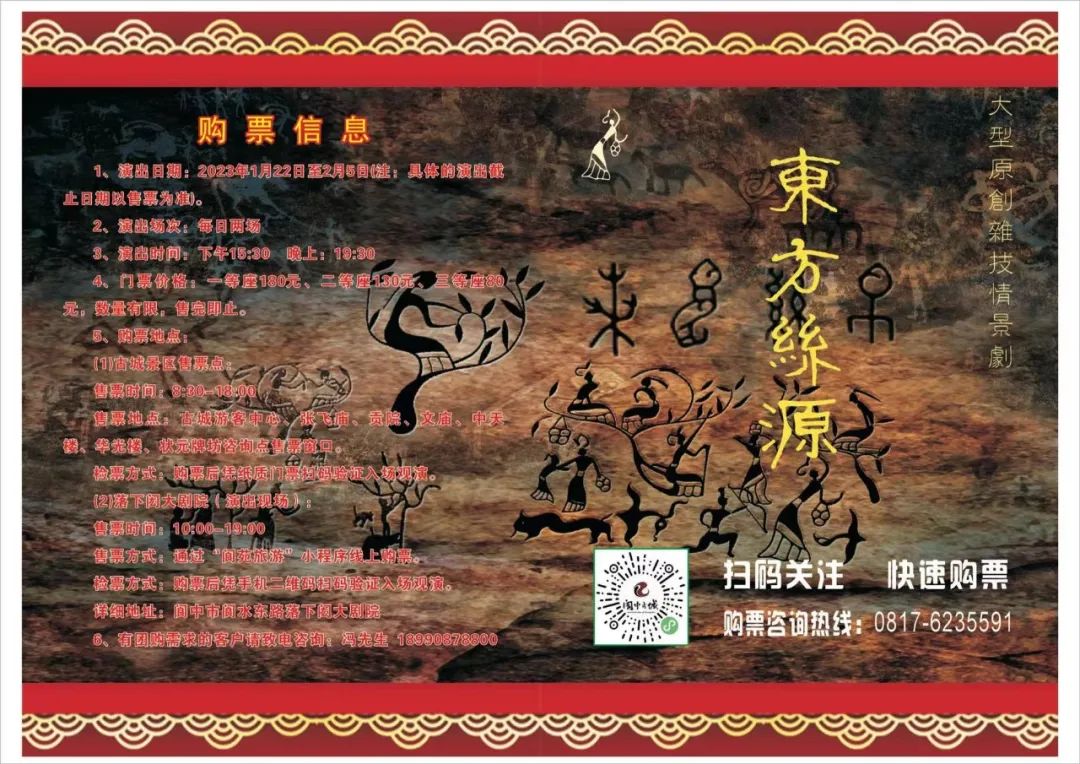 购票信息
1、演出日期：2023年1月22日至2月5日(注：具体的演出截
止日期以售票为准)。
2、演出场次：每日两场
3、演出时间：下午15:30 晚上：19:30
4、门票价格：一等座180元、二等座130元、三等座80
元，数量有限，售完即止。
5、购票地点：
(1)古城景区售票点：
售票时间：8:30—18:00
售票地点：古城游客中心、张飞庙、贡院、文庙、中天
楼、华光楼、状元牌坊咨询点售票窗口。
检票方式：购票后凭纸质门票扫码验证入场观演。
(2)落下闳大剧院（演出现场）：
售票时间：10:00—19:00
售票方式：通过“阆苑旅游”小程序线上购票。
检票方式：购票后凭手机二维码扫码验证入场观演。
详细地址：阆中市阆水东路落下闳大剧院
6、有团购需求的客户请致电咨询：冯先生 18990878800
大型原創雜技情景劇
東方絲源
阆中古城
扫码关注 快速购票
购票咨询热线：0817-6235591